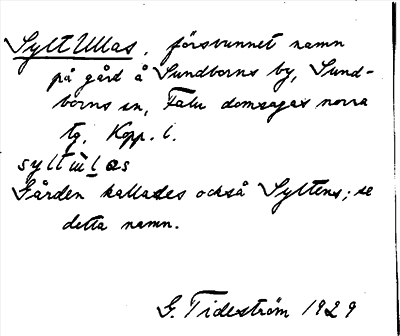 SyltUllas, försvunnet namn
på gård å Sundborns by, Sund-
borns sn, Falu domsagas norra
tg, Kopp. l.
Gården kallades också Syltens; se
detta namn.
G. Tideström 1929